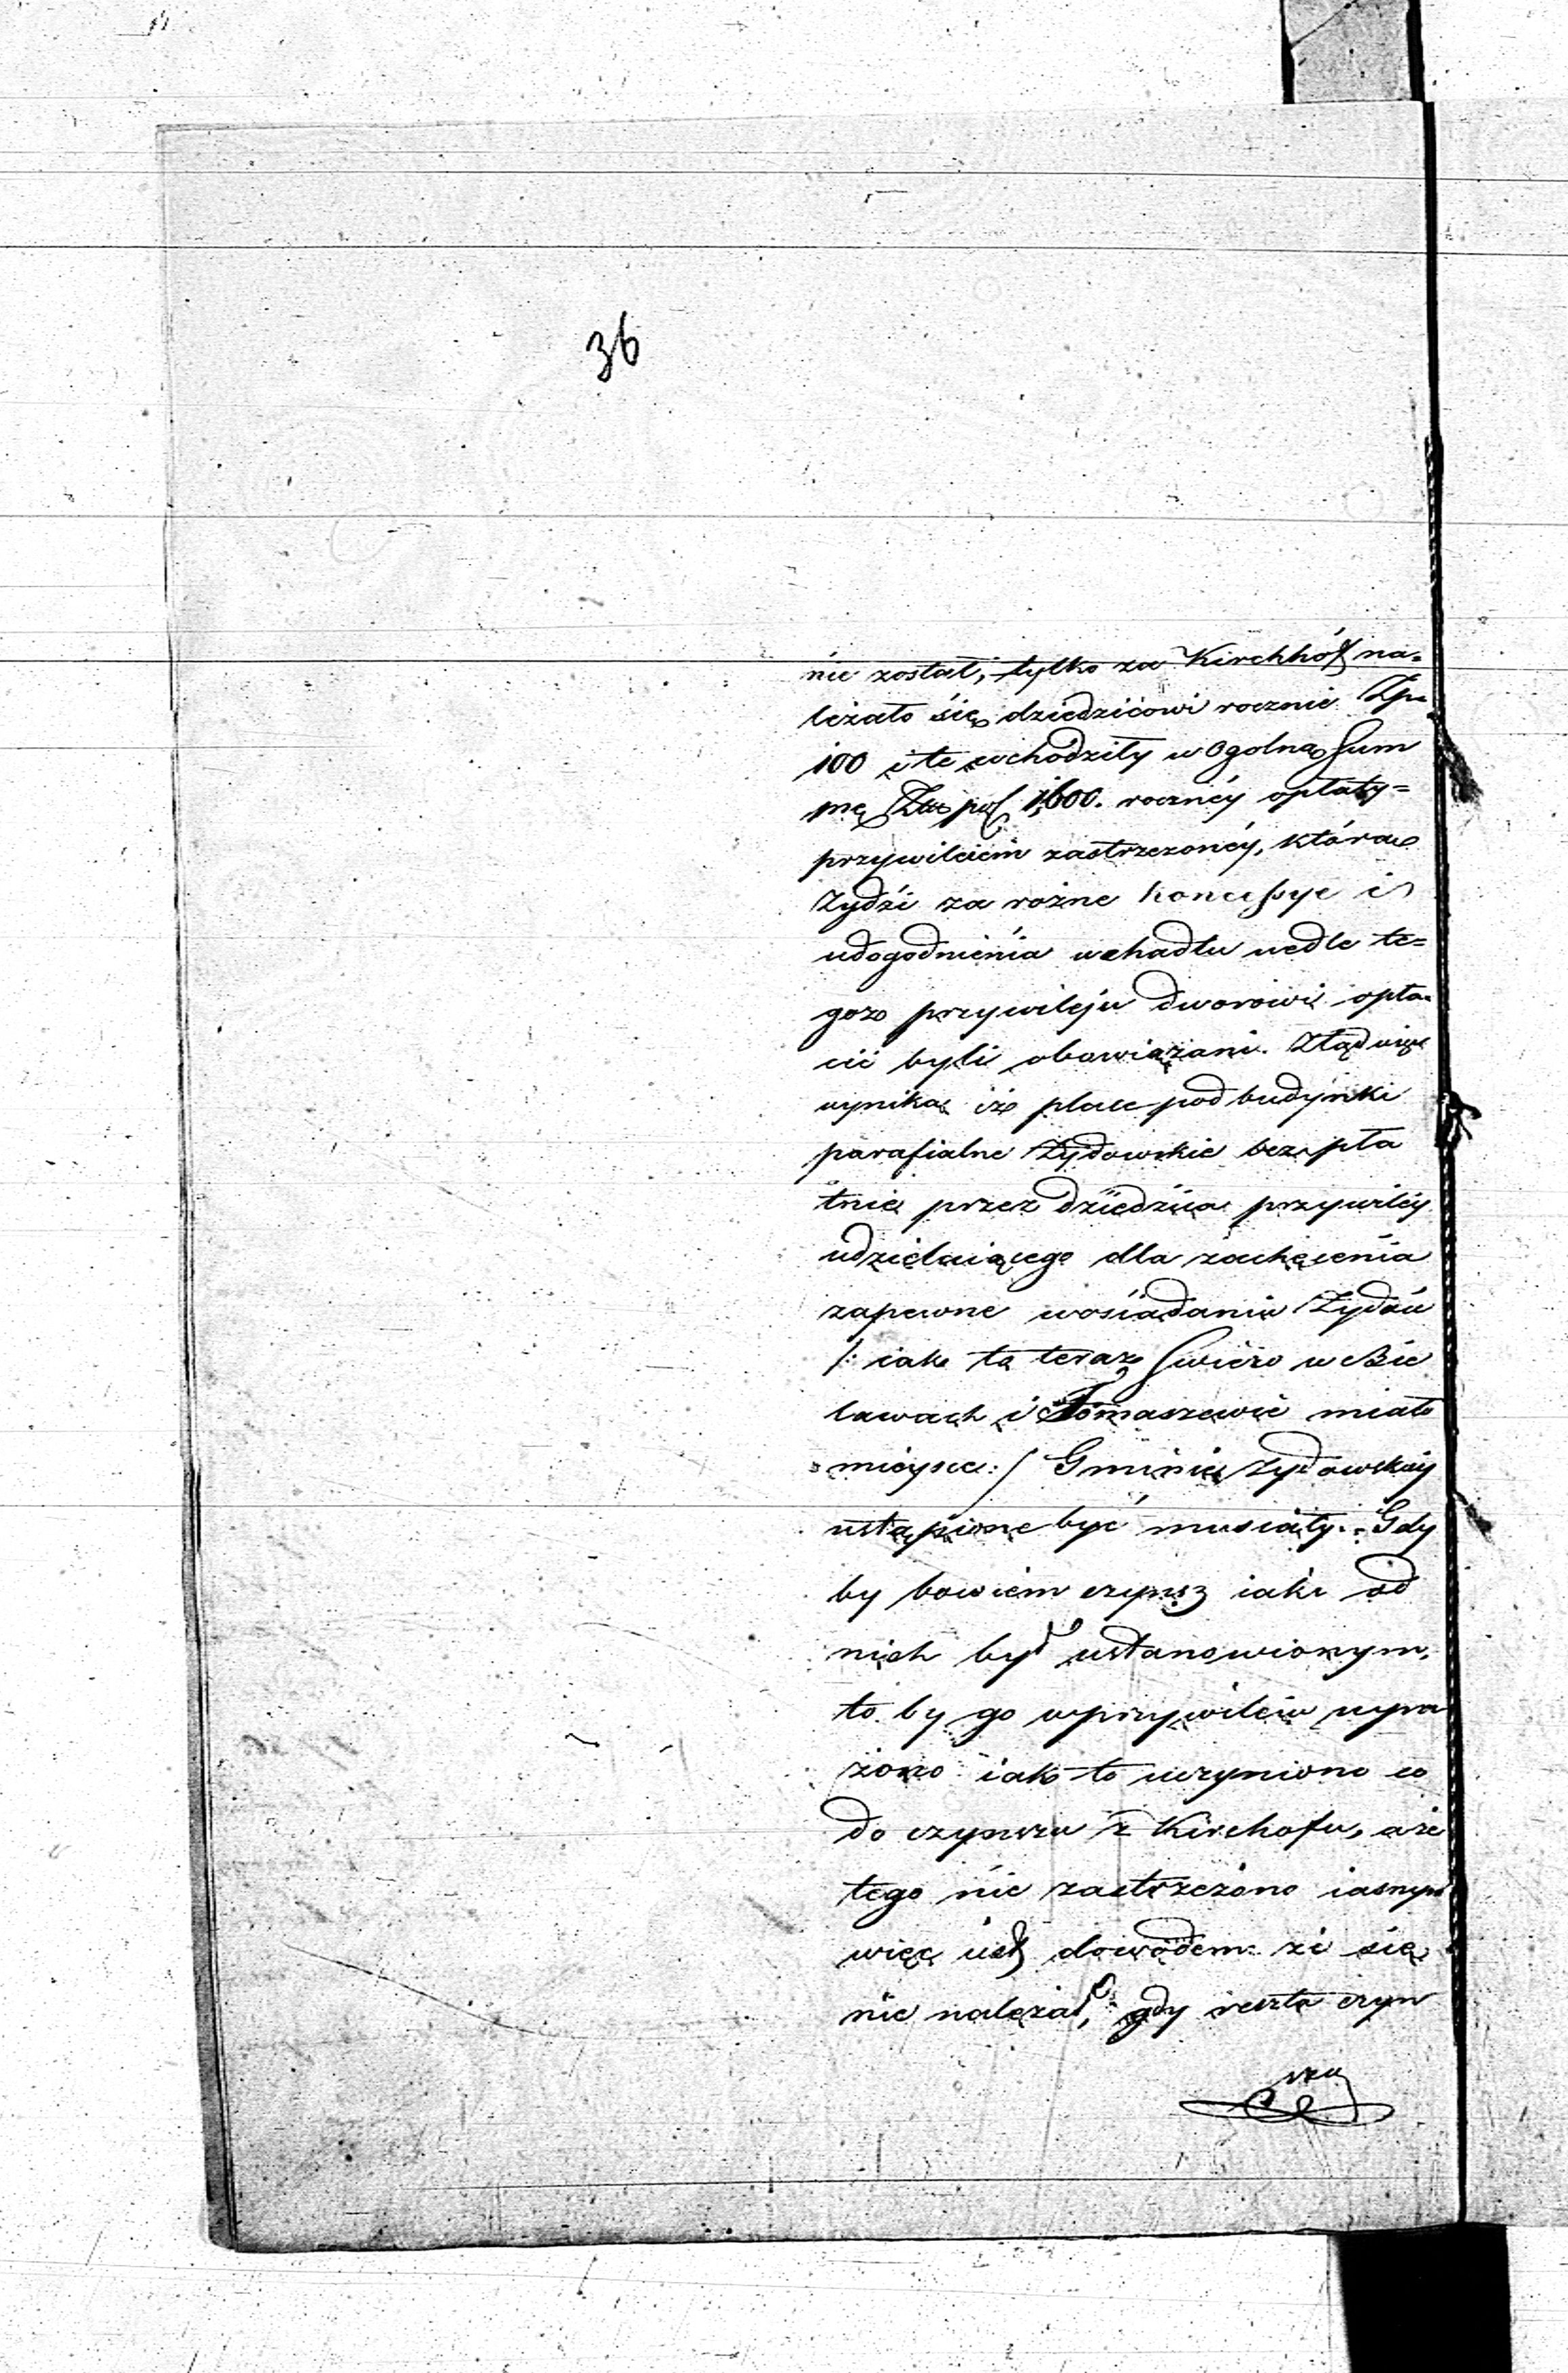 36
nie został, tylko za Kirchhóf na=
leżało się dziedzicowi rocznie Zp.
100 i te wchodziły w ogolną Sum
mę Złp pol 1,600. rocznéy opłaty=
przywileiem zastrzezonéy, którą
Zydzi za rożne koncessye i
udogodnienia w handlu wedle te=
goż przywileju dworowi opła=
cić byli obowiązani. Ztąd więc
wynika iż place pod budynki
parafialne Zydowskie bezpła
tnie przez dziedzica przywiléy
udzielaiącego dla zachęcenia
zapewne wosiadaniu Zydów
/: iak to teraz Swiéżo w Bie
lawach i Tomaszewie miało
mieysce :/ Gminie Zydowskiéy
ustąpione być musiały. Gdy
by bowiem czynsz iaki od
nich był ustanowionym,
to by go wprzywileiu wyra
żono iak to uczyniono co
do czynszu z Kirchofu, a że
tego nie zastrzeżono iasnym
więc iest dowodem że się
nie należał, gdy reszta czyn
szu